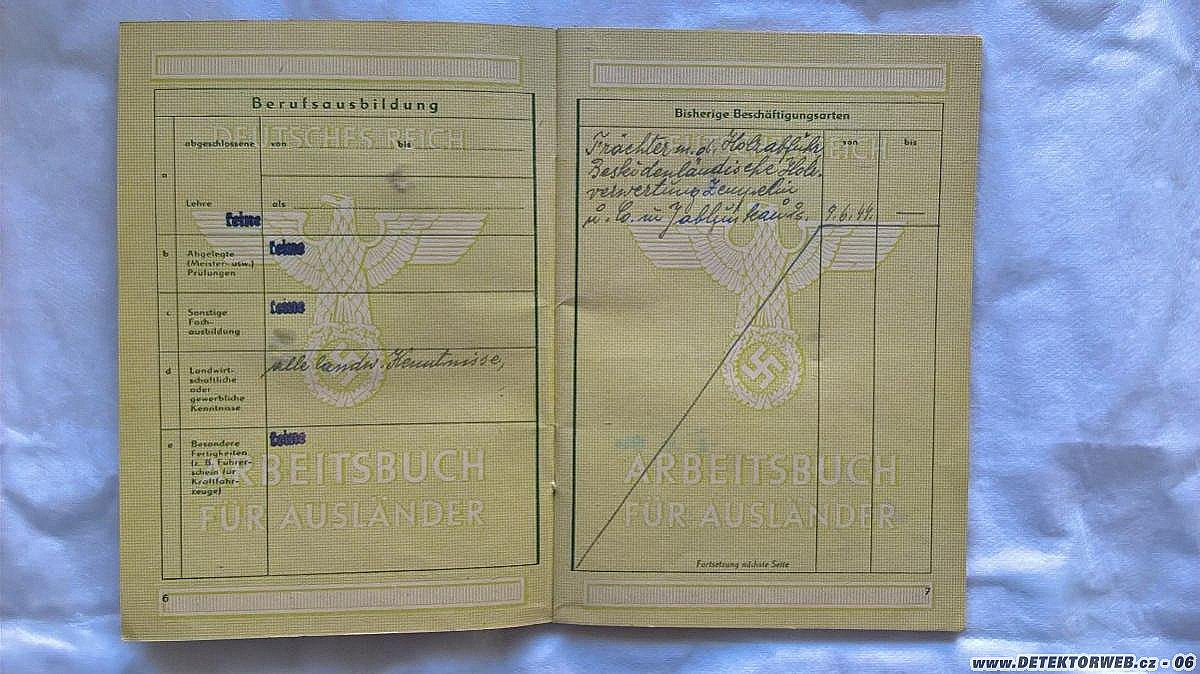 Berufsausbildung
DEUTSCHES REICH
a
abgeschlossene
von
bis
Lehre
als
keine
b
Abgelegte
(Meister- usw.)
Prüfungen
keine
c
Sonstige
Fach-
ausbildung
keine
d
Landwirt-
schaftliche
oder
gewerbliche
Kenntnisse
alle landw. Kenntnisse,
e
Besondere
Fertigkeiten
(z. B. Führer-
schein für
Kraftfahr-
zeuge)
keine
ARBEITSBUCH
FÜR AUSLÄNDER
6
Bisherige Beschäftigungsarten
REICH
von
bis
Frächter m. d. Holzabfuhr
Beskidenländische Holz-
verwertung Zeppelin
u. Co. in Jablunkau
9.6.44.
—
ARBEITSBUCH
FÜR AUSLÄNDER
Fortsetzung nächste Seite
7
www.DETEKTORWEB.cz - 06